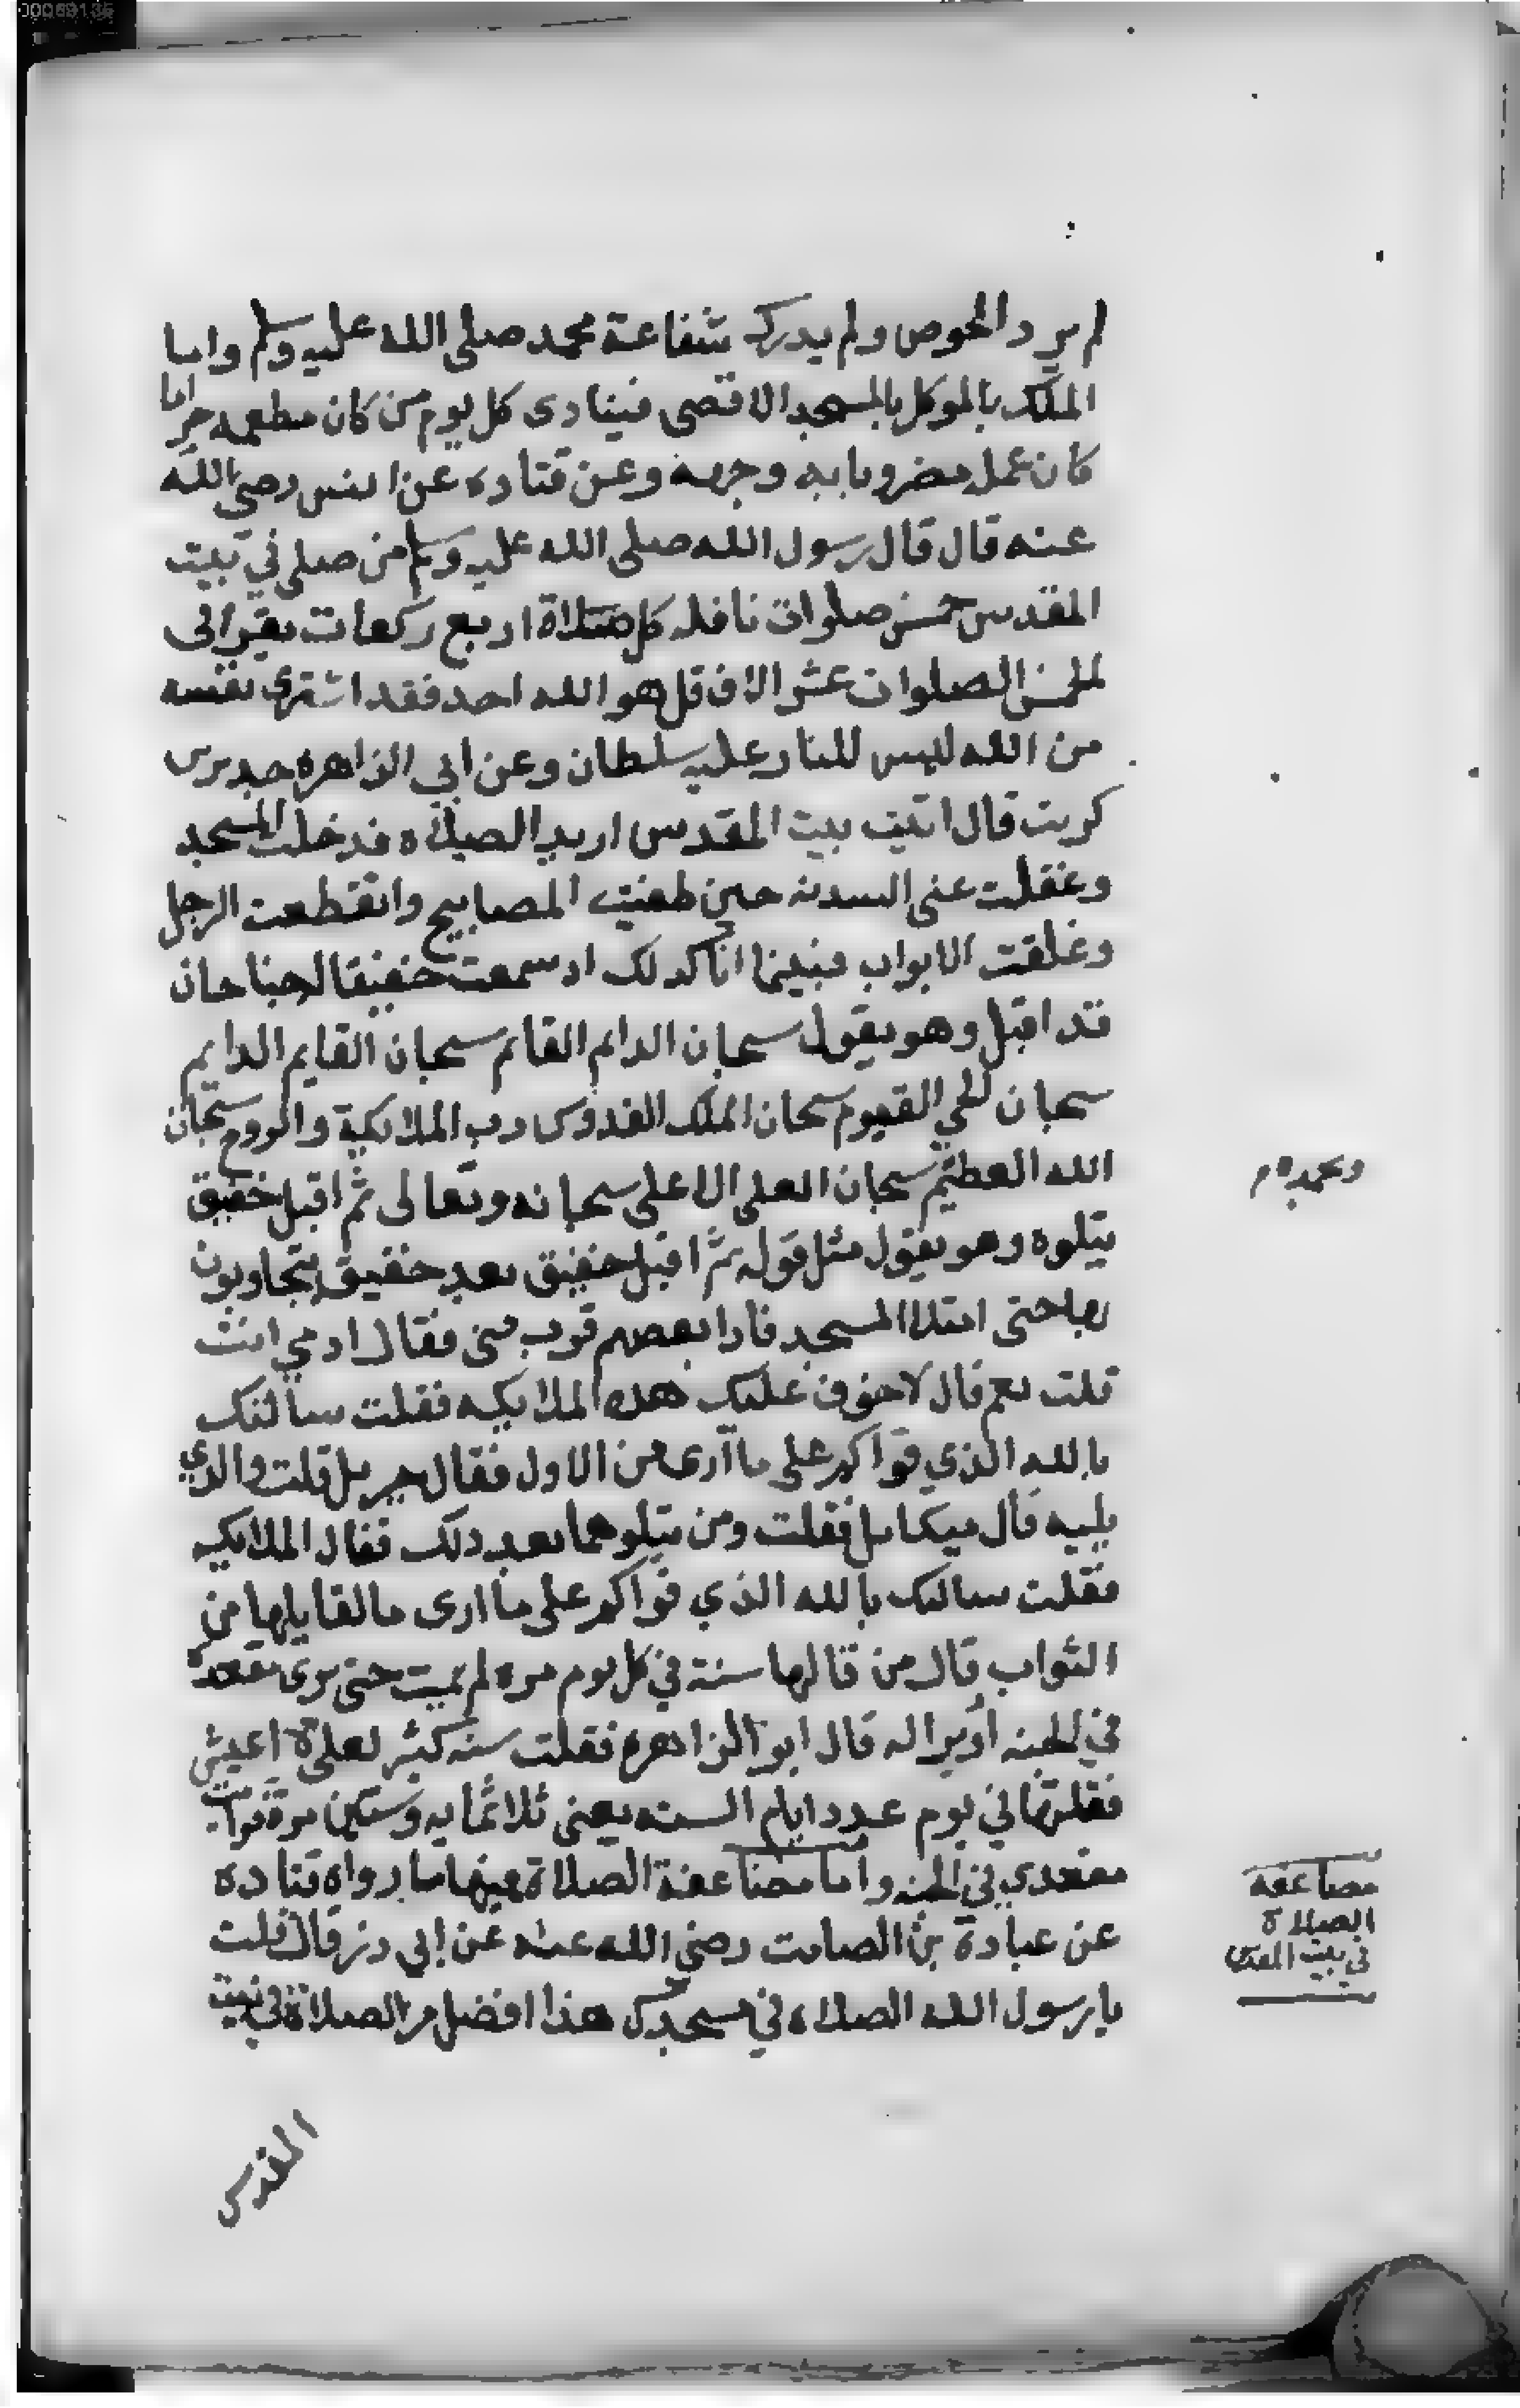 لم يرد الحوض ولم يدرك شفاعة محمد صلى الله عليه وسلم واما
الملك بالموكل بالمسجد الاقصى فينادى كل يوم من كان مطعمه حراما
كان عمله مضروبا به وجهه وعن قتاده عن انس رضي الله
عنه قال قال رسول الله صلى الله عليه وسلم من صلى في بيت
المقدس خمس صلوات نافله كل صلاة اربع ركعات يقرا في
الخمس الصلوات عشر الاف قل هو الله احد فقد اشترى نفسه
من الله ليس للنار عليه سلطان وعن ابي الزاهره حدير بن
كريب قال اتيت بيت المقدس اريد الصلاه فدخلت المسجد
وغفلت عنى السدنه حين طفيت المصابيح وانقطعت الرجل
وغلقت الابواب فبينما انا كذلك اذ سمعت حفيفا له جناحان
قد اقبل وهو يقول سبحان الدائم القائم سبحان القايم الدايم
سبحان الحي القيوم سبحان الملك القدوس رب الملائكية والروح سبحان
الله العظيم سبحان العلى الاعلى سبحانه وتعالى ثم اقبل حفيف
يتلوه وهو يقول مثل قوله ثم اقبل حفيف بعد حفيف يتجاوبون
بها حتى امتلا المسجد فاذا بعضهم قريب منى فقال ادمي انت
قلت نعم قال لا خوف عليك هذه الملايكه فقلت سالتك
بالله الذي قواكم على ما ارى من الاول فقال جبريل قلت والذي
يليه قال ميكايل فقلت ومن يتلوهما بعد ذلك فقال الملايكه
فقلت سالتك بالله الذي قواكم على ما ارى ما لقايلها من
الثواب قال من قالها سنة في كل يوم مره لم يميت حتى يرى مقعده
في الجنه او يرا له قال ابو الزاهره فقلت سنه كثير لعلى لا اعيش
فقلتها في يوم عدد ايام السنه يعنى ثلاثمايه وستين مرة فرايت
مقعدي في الجنه واما مضاعفة الصلاة فيها ما رواه قتاده
عن عبادة بن الصامت رضي الله عنه عن ابي ذر قال قلت
يا رسول الله الصلاه في مسجدك هذا افضل من الصلاة في بيت
المقدس
وبحمده م
مضاعفه
الصلاة
في بيت المقدس